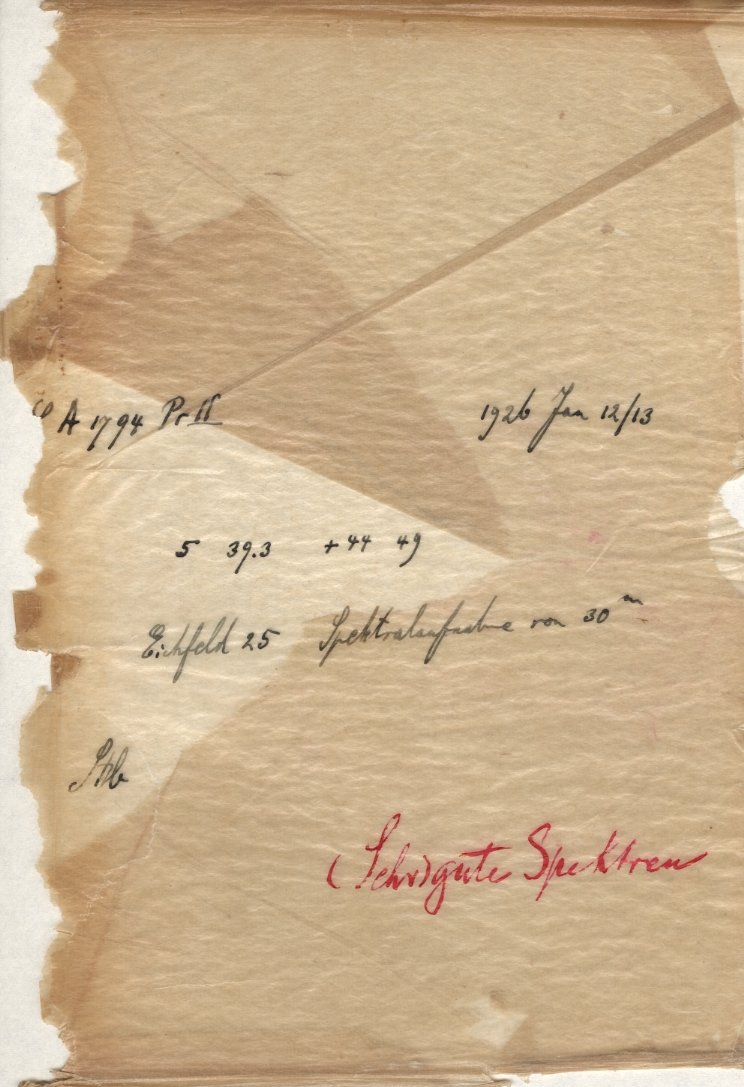 A 1794 Pr II 1926 Jan 12/13
5 39.3 +44 49
Eichfeld 25 Spektralaufnahme von 30 m
(Sehr) gute Spektren